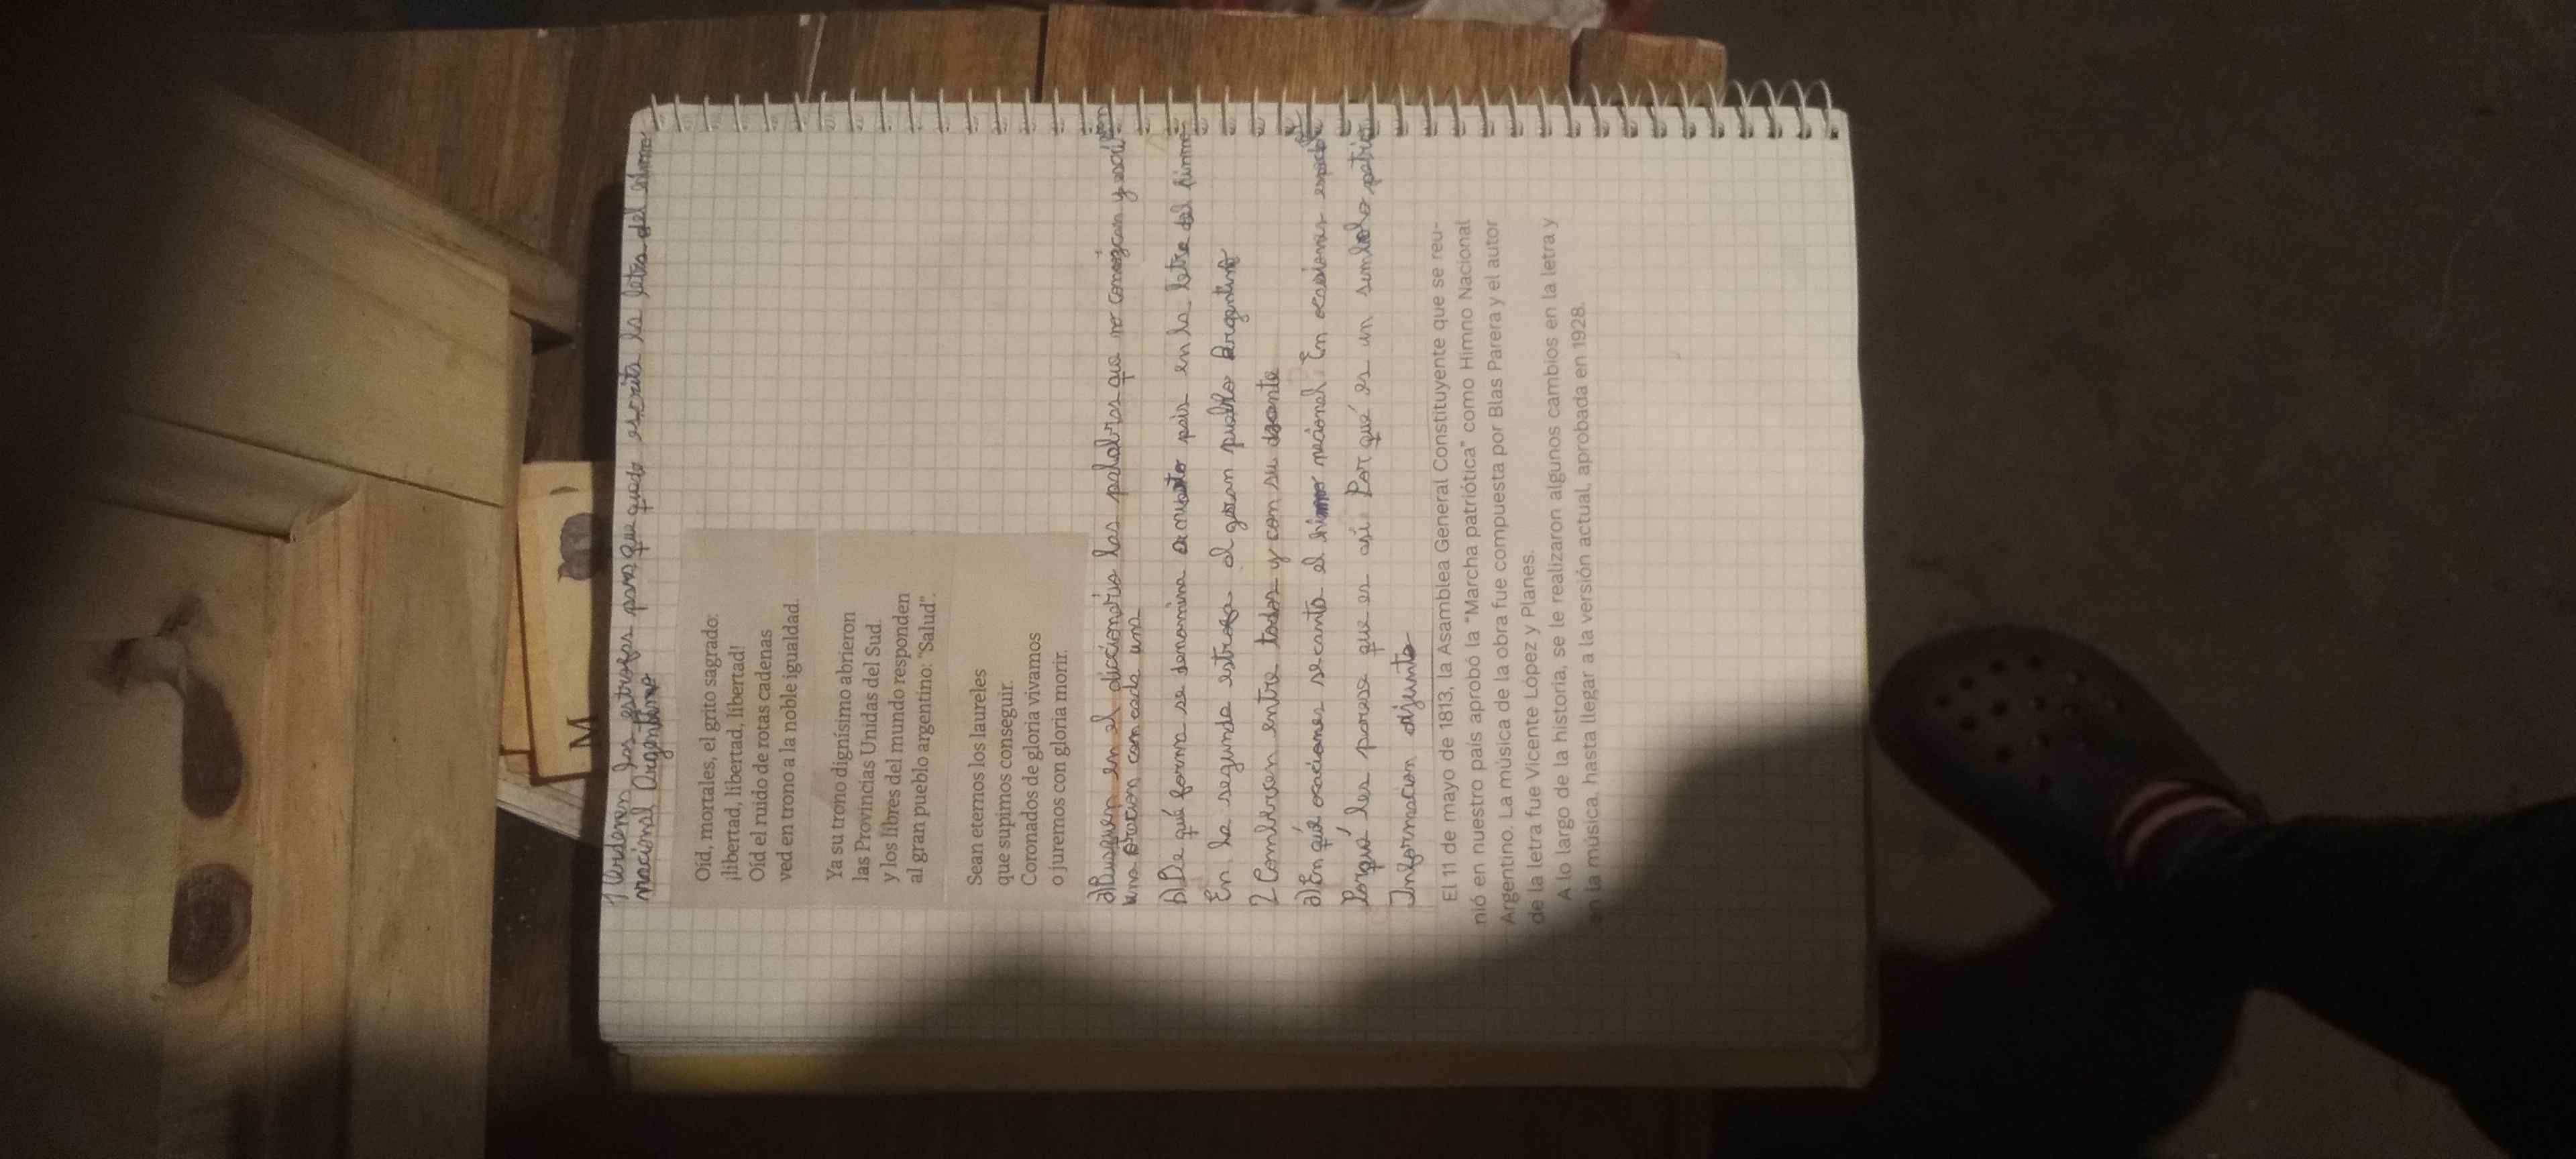 1 Ordenen las estrofas para que quede escrita la letra del himno
nacional Argentino
Oíd, mortales, el grito sagrado:
¡libertad, libertad, libertad!
Oíd el ruido de rotas cadenas
ved en trono a la noble igualdad.
Ya su trono dignísimo abrieron
las Provincias Unidas del Sud.
y los libres del mundo responden
al gran pueblo argentino: "Salud".
Sean eternos los laureles
que supimos conseguir.
Coronados de gloria vivamos
o juremos con gloria morir.
a) Busquen en el diccionario las palabras que no conozcan y escriban
una oración con cada una
b) De qué forma se denomina a nuestro país en la letra del himno
En la segunda estrofa al gran pueblo Argentino
2 Conversen entre todos y con su docente
a) En qué ocasiones se canta el himno nacional. En ocasiones
Porqué les parece que es así Por qué es un simbolo patrio
Informacion adjunta
El 11 de mayo de 1813, la Asamblea General Constituyente que se reu-
nió en nuestro país aprobó la "Marcha patriótica" como Himno Nacional
Argentino. La música de la obra fue compuesta por Blas Parera y el autor
de la letra fue Vicente López y Planes.
A lo largo de la historia, se le realizaron algunos cambios en la letra y
en la música, hasta llegar a la versión actual, aprobada en 1928.
M